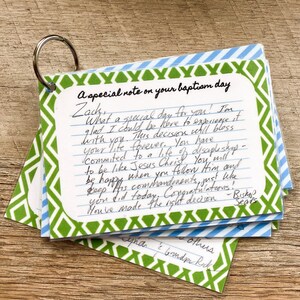 A special note on your baptism day
Zack,
What a special day for you! I'm
glad I could be here to experience it
with you. This decision will bless
your life forever. You have
commited to a life of discipleship-
to be like Jesus Christ. You will
be happy when you follow Him and
keep His commandments, just like
you did today. Congratulations!
You've made the right decision.